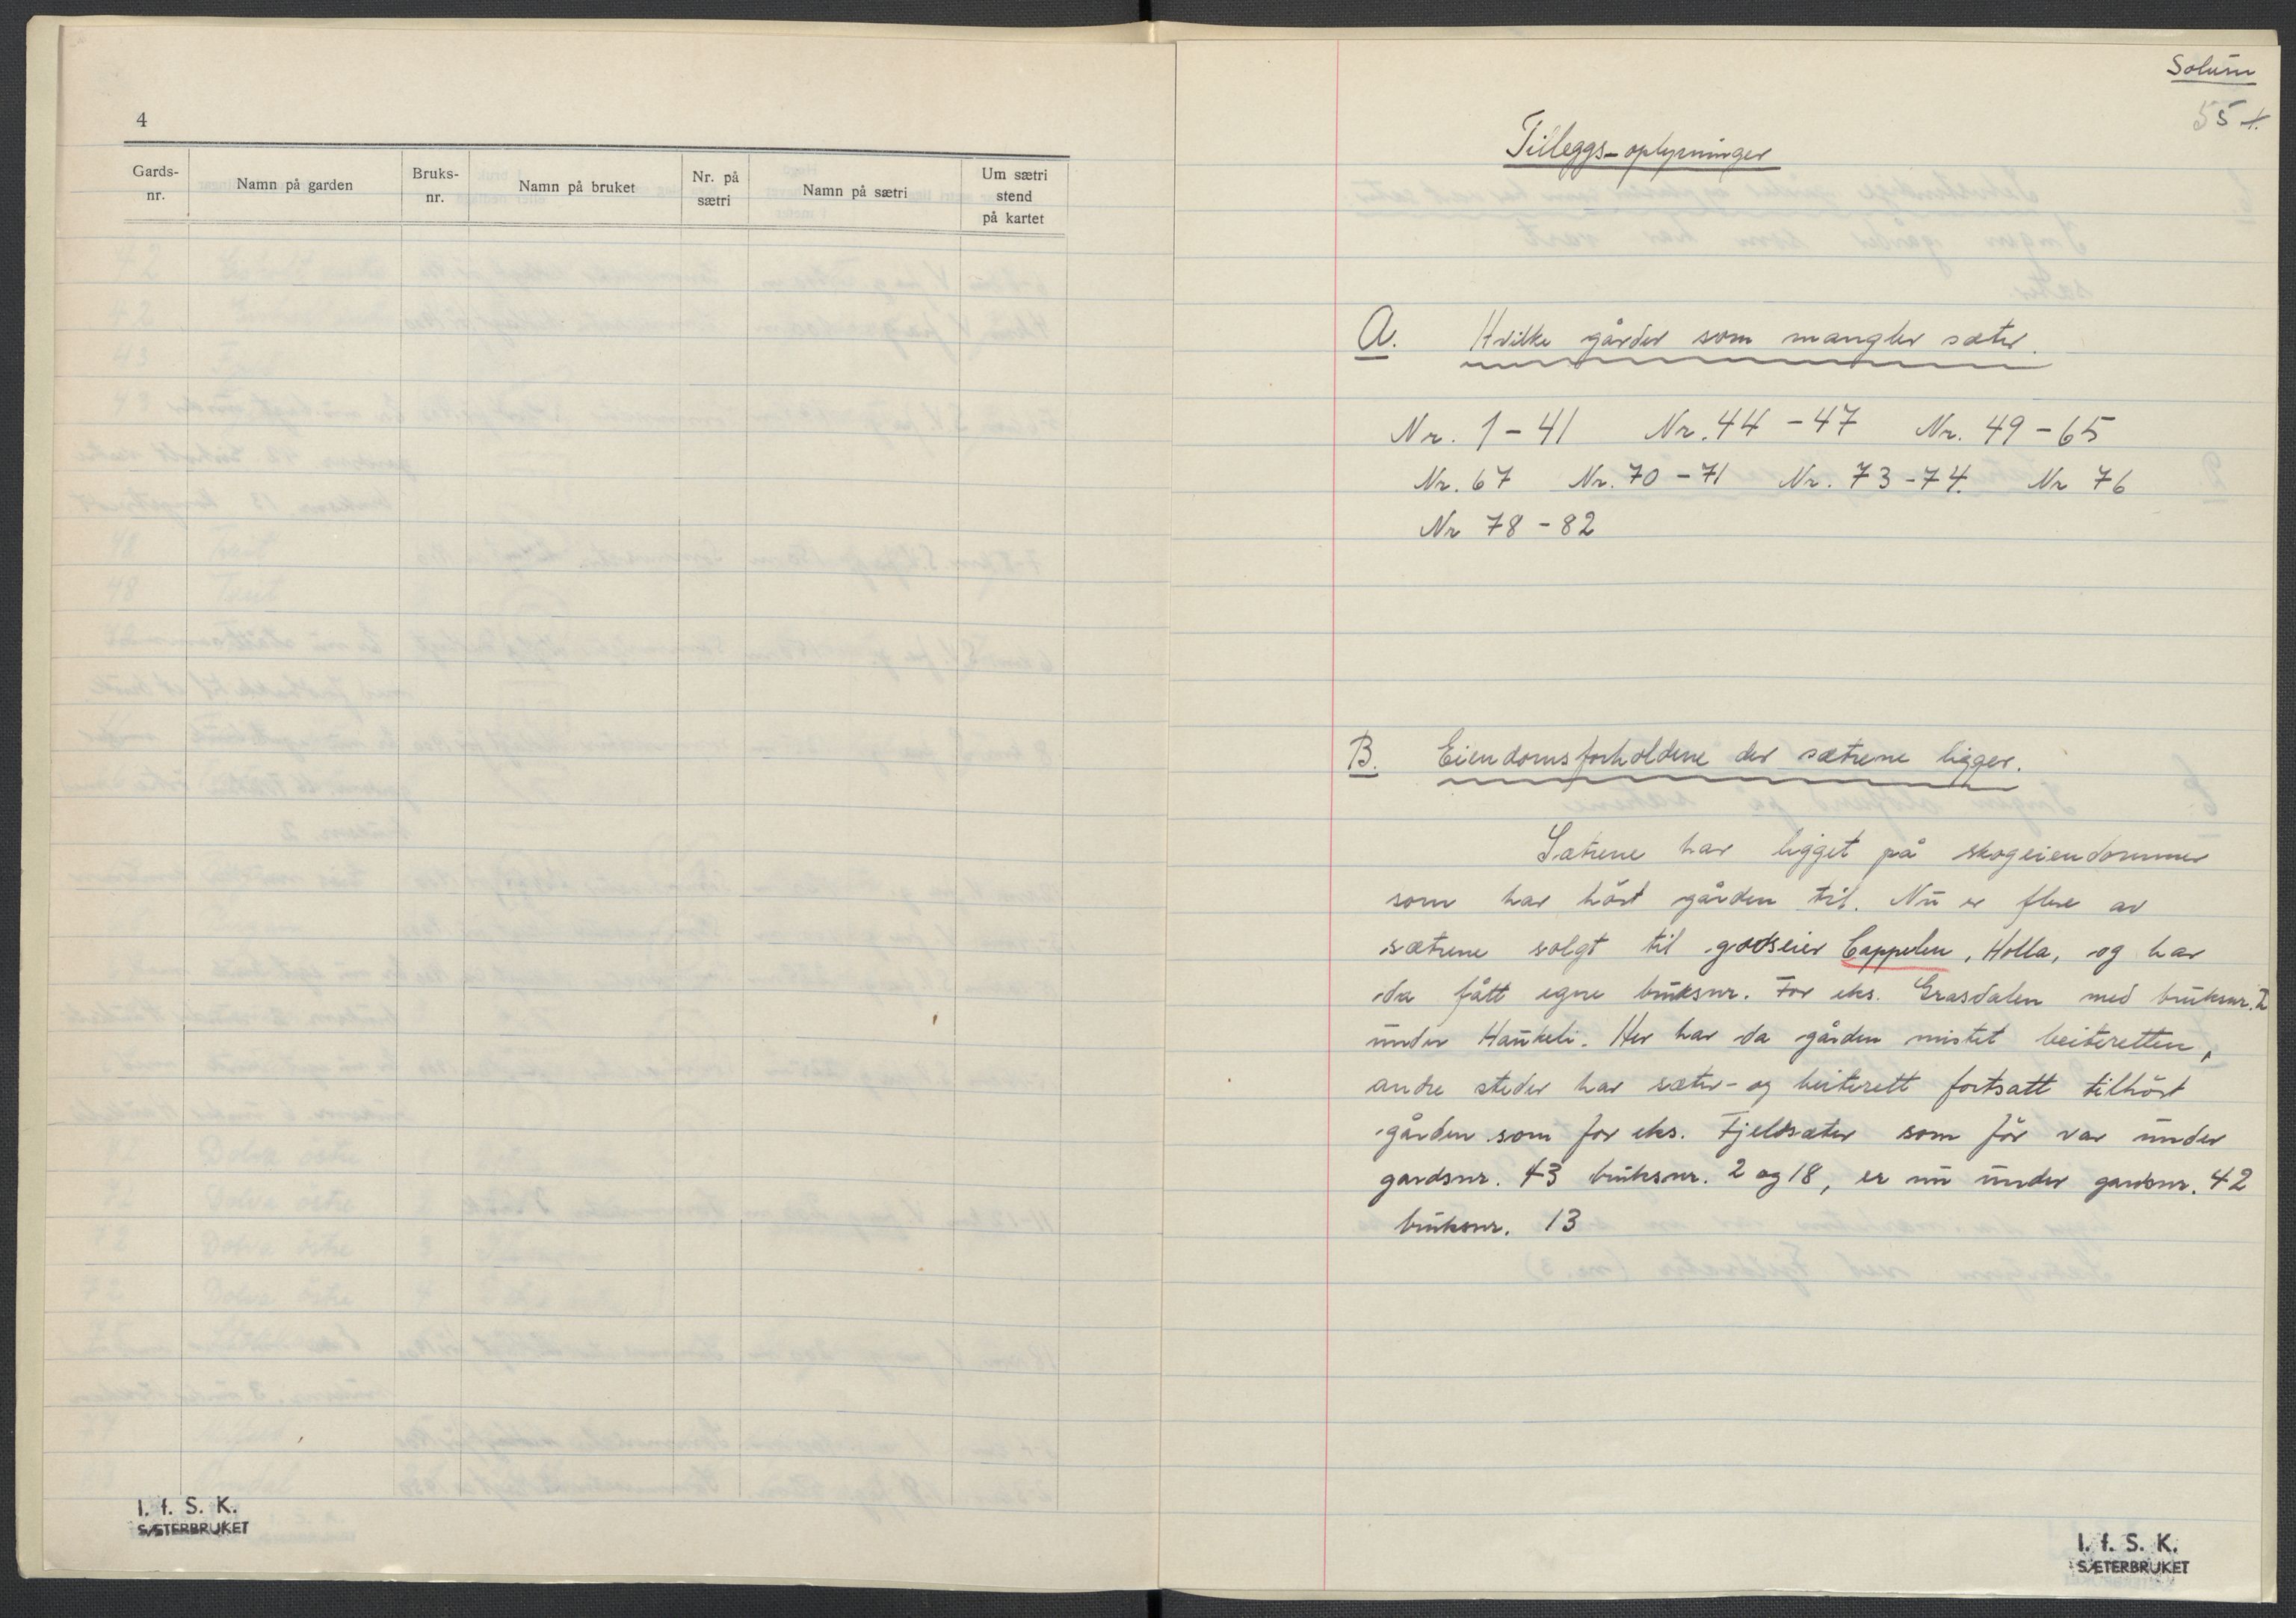 4
Gards-nr. Namn på garden Bruks-nr. Namn på bruket Nr. på sætri Namn på sætri Um sætri stend på kartet
I. f. S. K.
SÆTERBRUKET
Solum
55
Tilleggs-oplysninger
A. Hvilke gårder som mangler sæter.
Nr. 1-41 Nr. 44-47 Nr. 49-65
Nr. 67 Nr. 70-71 Nr. 73-74. Nr 76
Nr 78-82
B. Eiendomsforholdene der sætrene ligger.
Sætrene har ligget på skogeiendommer
som har hört gården til. Nu er flere av
sætrene solgt til godseier Cappelen, Holla, og har
da fått egne bruksnr. For eks. Grasdalen med bruksnr. 2
under Haukeli. Her har da gården mistet beiteretten,
andre steder har sæter- og beiterett fortsatt tilhört
gården som for eks. Fjeldsæter som för var under
gardsnr. 43 bruksnr. 2 og 18, er nu under gardsnr. 42
bruksnr. 13
I. f. S. K.
SÆTERBRUKET